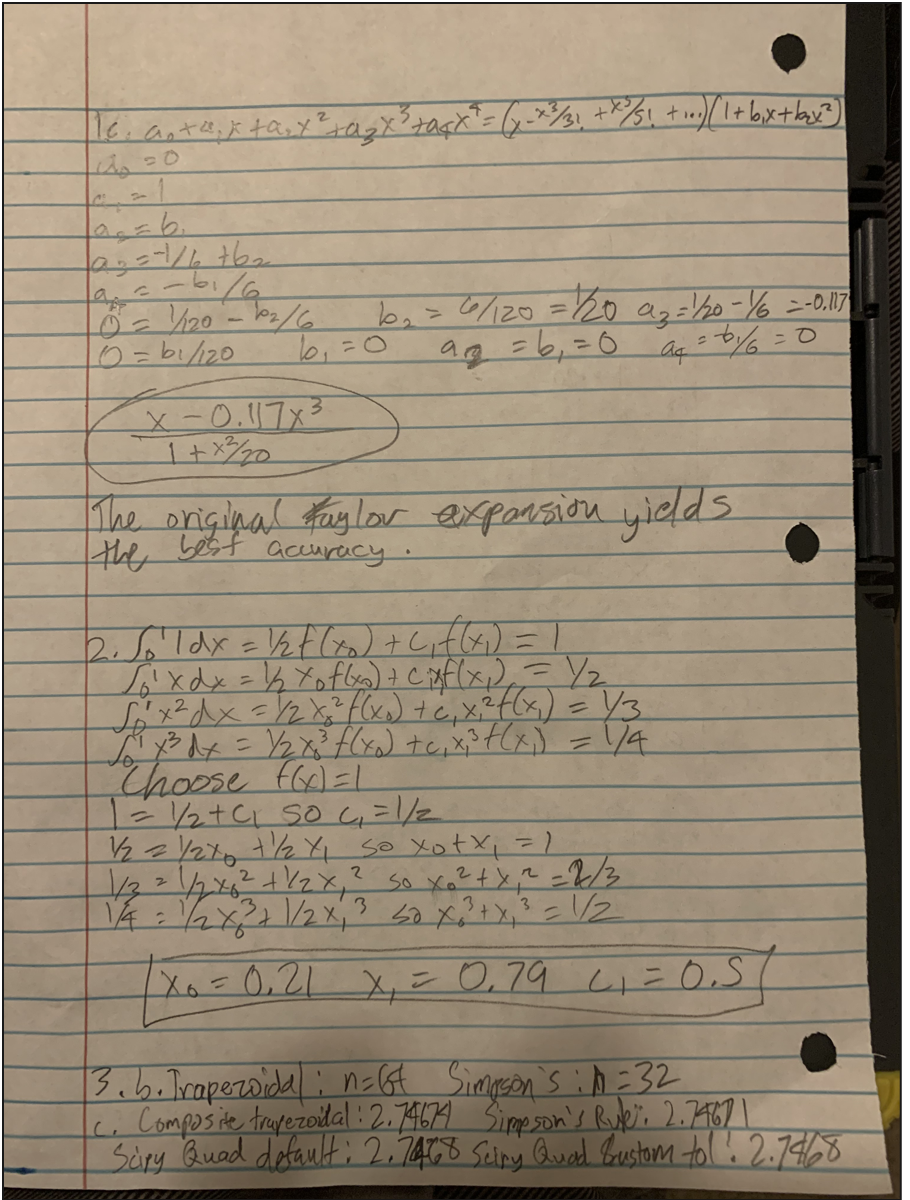 1c. a₀ + a₁x + a₂x² + a₃x³ + a₄x⁴ = (x - x³/3! + x⁵/5! + ...)(1 + b₁x + b₂x²)
a₀ = 0
a₁ = 1
a₂ = b₁
a₃ = -1/6 + b₂
a₄ = -b₁/6
0 = 1/120 - b₂/6 b₂ = 6/120 = 1/20 a₃ = 1/20 - 1/6 = -0.117
0 = b₁/120 b₁ = 0 a₂ = b₁ = 0 a₄ = -b₁/6 = 0
x - 0.117x³
1 + x²/20
The original Taylor expansion yields
the best accuracy.
2. ∫₀¹ 1dx = 1/2 f(x₀) + c₁f(x₁) = 1
∫₀¹ xdx = 1/2 x₀f(x₀) + c₁x₁f(x₁) = 1/2
∫₀¹ x²dx = 1/2 x₀²f(x₀) + c₁x₁²f(x₁) = 1/3
∫₀¹ x³dx = 1/2 x₀³f(x₀) + c₁x₁³f(x₁) = 1/4
Choose f(x) = 1
1 = 1/2 + c₁ so c₁ = 1/2
1/2 = 1/2x₀ + 1/2x₁ so x₀ + x₁ = 1
1/3 = 1/2x₀² + 1/2x₁² so x₀² + x₁² = 2/3
1/4 = 1/2x₀³ + 1/2x₁³ so x₀³ + x₁³ = 1/2
x₀ = 0.21 x₁ = 0.79 c₁ = 0.5
3. b. Trapezoidal: n=64 Simpson's: n=32
c. Composite trapezoidal: 2.74674 Simpson's Rule: 2.74671
Scipy Quad default: 2.7468 Scipy Quad custom tol: 2.7468